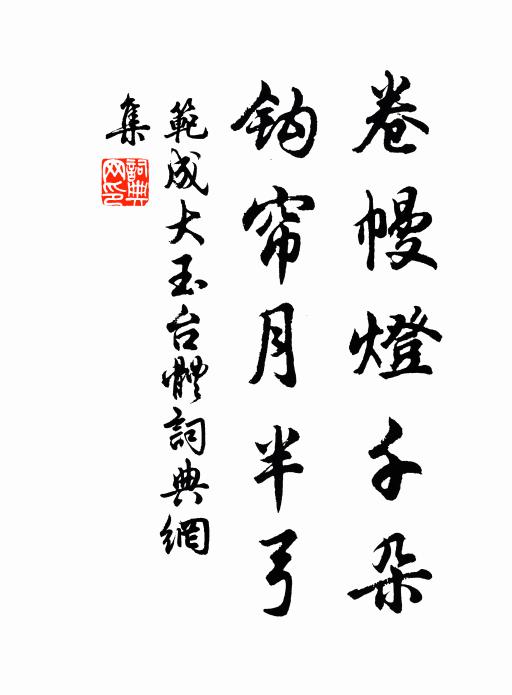 卷幔燈千朵
鈎帘月半弓
範成大玉台體詞典網
集
詞典网印